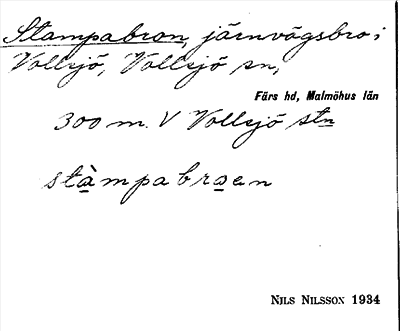 Stampabron, järnvägsbro i
Vollsjö, Vollsjö sn,
Färs hd, Malmöhus län
300 m. V Vollsjö stn
stàmpabroen
Nils Nilsson 1934